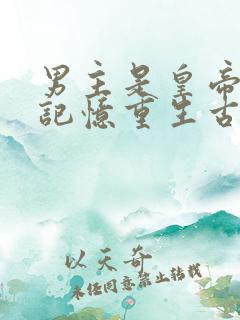 男主是皇帝
記憶重生古
以天奇
未經同意禁止轉載